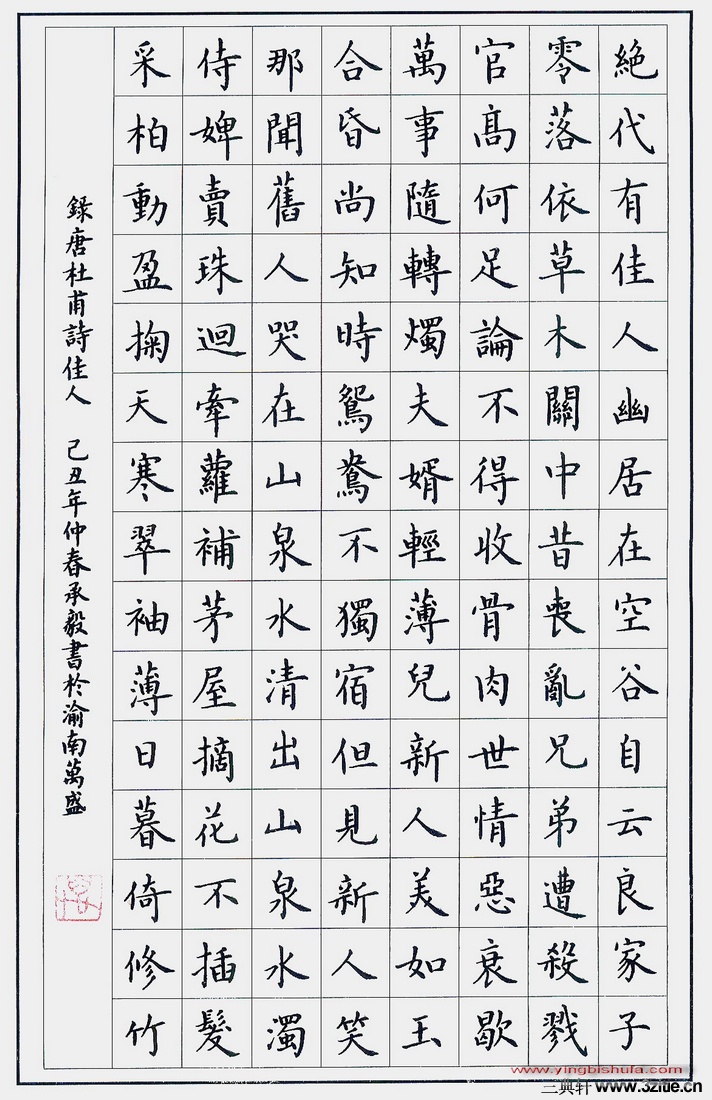 絶代有佳人幽居在空谷自云良家子
零落依草木關中昔喪亂兄弟遭殺戮
官高何足論不得收骨肉世情惡衰歇
萬事隨轉燭夫婿輕薄兒新人美如玉
合昏尚知時鴛鴦不獨宿但見新人笑
那聞舊人哭在山泉水清出山泉水濁
侍婢賣珠迴牽蘿補茅屋摘花不插髮
采柏動盈掬天寒翠袖薄日暮倚修竹
録唐杜甫詩佳人 己丑年仲春承毅書於渝南萬盛
www.yingbishufa.com
三典轩 www.32lue.cn